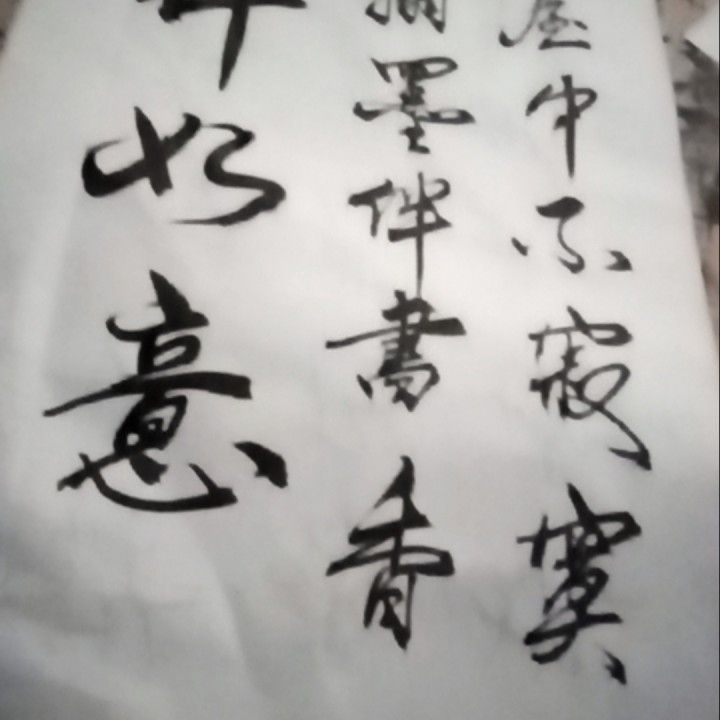 屋中不寂寞
翰墨伴書香
如意